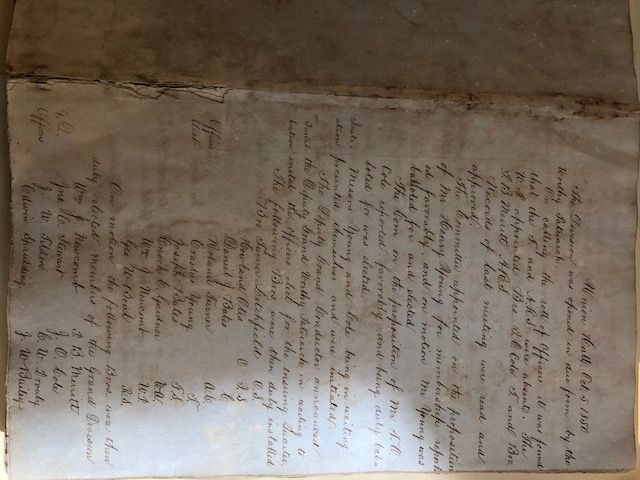 Union Hall Oct 5 1857
The Division was opened in due form by the
Worthy Patriarch
On calling the roll of Officers it was found
that the T. and A.R.S. were absent. The
W.P. appointed Bro. J. O. Cole T. and Bro.
S. B. Merritt A.R.S.
Records of last meeting were read and
approved.
The Committee appointed on the proposition
of Mr Henry Young for membership report
ed favorably and on motion Mr Young was
balloted for and elected.
The Com. on the proposition of Mr
Cole reported favorably and being duly bal
loted for was elected.
Messrs Young and Cole being in waiting
presented themselves and were initiated.
The Deputy Grand Conductor announced
that the Deputy Grand Worthy Patriarch was waiting to
install the Officers elect for the ensuing Quarter.
The following Bros were then duly installed
Officers
Elect
Bro Litchfield C.S.
Howland Otis O.S.
Daniel J. Bates C.
Roland Turner A.C.
Erastus Young T.
Joseph Bates F.S.
Enoch C. Gardner W.A.
Wm J. Newcomb W.P.
Geo W. R.S.
On motion the following Bros were then
duly elected members of the Grand Division
G.D.
Officers
Wm J. Newcomb S. B. Merritt
Jos. Stewart J. O. Cole
J. W. C. W. Prouty
Edwin Spaulding J. W. Bailey